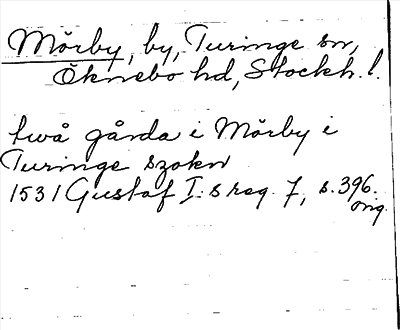 Mörby, by, Turinge sn,
Öknebo hd, Stockh. l.
twå gårda i Mörby i
Turinge szokn
1531 Gustaf I:s reg. 7, s. 396.
orig.